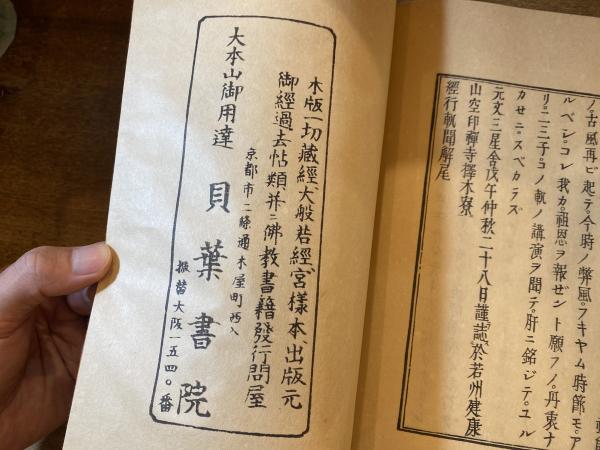 ノ。古風再ビ起テ。今時ノ弊風。フキヤム時節モ。ア
ルベシ。コレ我カ。祖恩ヲ報ゼント願フノ。丹衷ナ
リ。二三子。コノ軌ノ講演ヲ聞テ。肝ニ銘ジテ。ユル
カセニ。スベカラズ
元文三星舍戊午仲秋二十八日謹誌於若州建康
山空印禪寺擇木寮
經行軌聞解尾
木版一切藏經、大般若經、宮樣本、出版元
御經過去帖類、并ニ佛教書籍發行問屋
京都市二條通木屋町西入
大本山御用達 貝葉書院
振替大阪一五四〇番